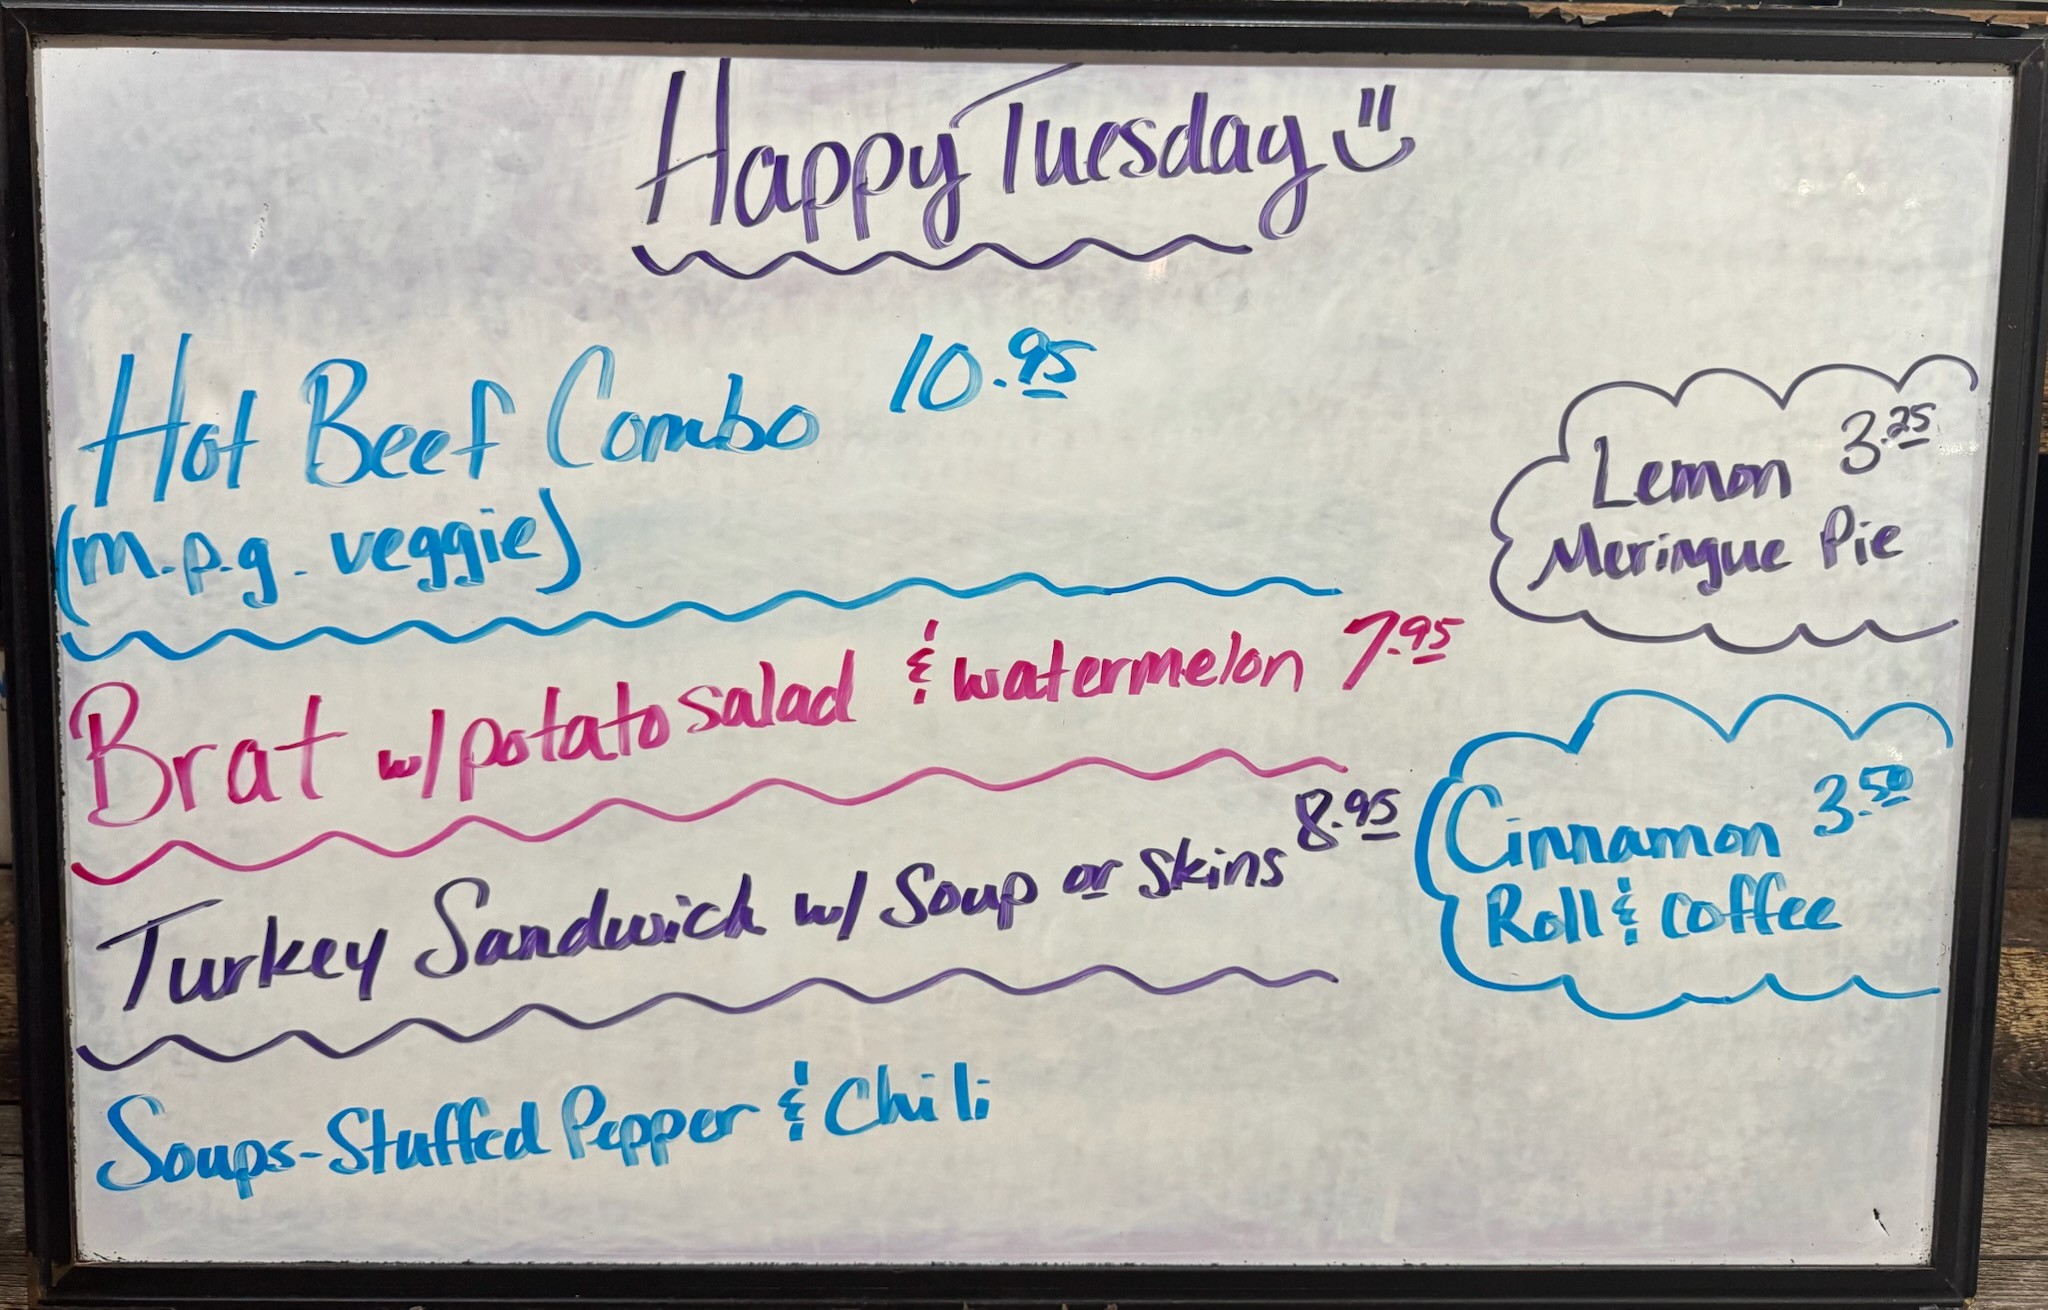 Happy Tuesday
Hot Beef Combo 10.95
(m.p.g. veggie)
Brat w/ potato salad & watermelon 7.95
Turkey Sandwich w/ Soup or skins 8.95
Soups-Stuffed Pepper & Chili
Lemon 3.25
Meringue Pie
Cinnamon 3.50
Roll & coffee